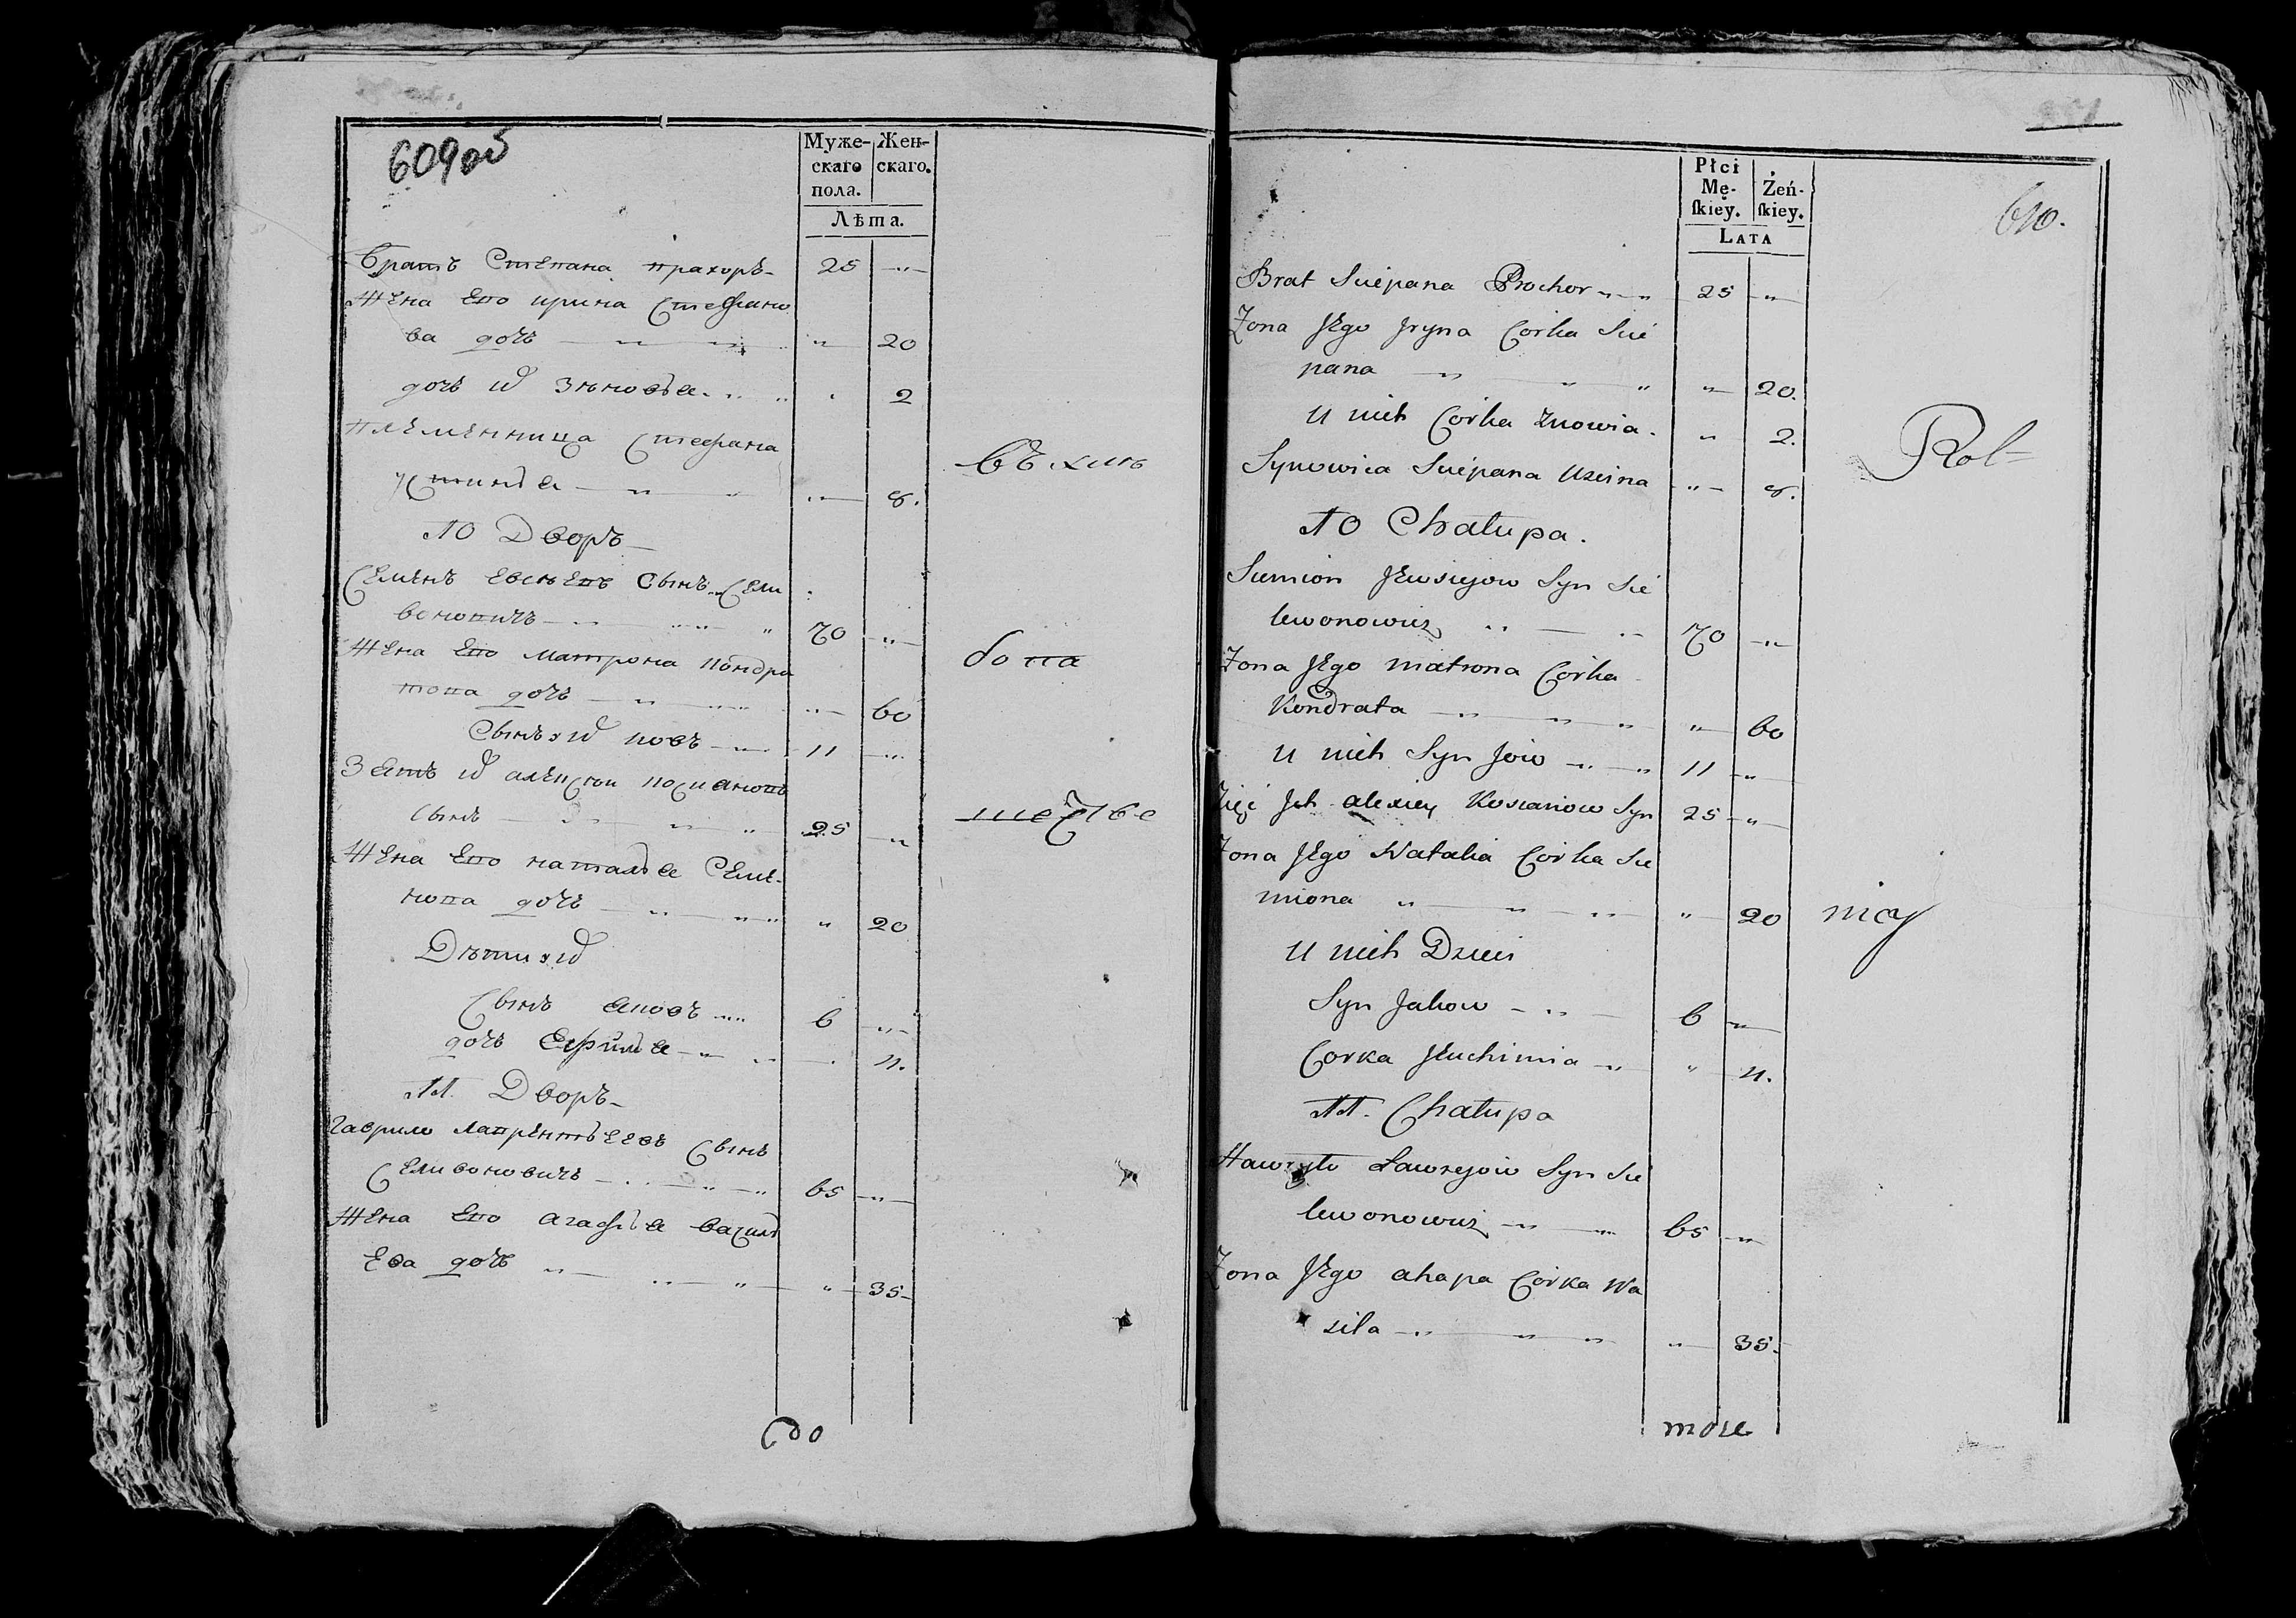 609об
Муже- Жен-
скаго скаго.
пола.
Лѣта.
братъ Степана прахоръ 25 "
Жена Его ирина Стефано
ва дочь " 20
дочь их Зѣновья " 2
племенница Стефана
Устинья " 8.
въ хин
10 Дворъ
Семенъ Евсеевъ Сынъ Сели
воновичъ 70 "
Жена Его Матрона Кондра
това дочь " 60
бова
Сынъ их иовъ 11 "
Зять их алексей Косцановъ
Сынъ 25 "
Жена Его наталья Семе-
нова дочь " 20
Дѣти их
Сынъ Яковъ 6 "
дочь Ефимья " 11.
11. Дворъ
Гаврило Лаврентьевъ Сынъ
Селивоновичъ 65 "
Жена Его агафья васил
Ева дочь " 35
Płci
Mę- Żeń-
skiey. skiey.
LATA
610.
Brat Sciepana Prochor 25 "
Zona Jego Jryna Corka Scie
pana " 20.
U nich Corka Znowia " 2.
Synowica Sciepana Uscina " 8.
Rol=
10 Chałupa.
Siemion Jewsiejow Syn Sie
lewonowicz 70 "
Zona Jego Matrona Corka
Kondrata " 60
U nich Syn Jow 11 "
Zięć Jch alexiey Koscianow Syn 25 "
Zona Jego Natalia Corka Sie
miona " 20
nicy
U nich Dzieci
Syn Jakow 6 "
Corka Jeuchimia " 11.
11. Chałupa
Hawryło Ławrejow Syn Sie
lewonowicz 65 "
Zona Jego ahapa Corka Wa
sila " 35